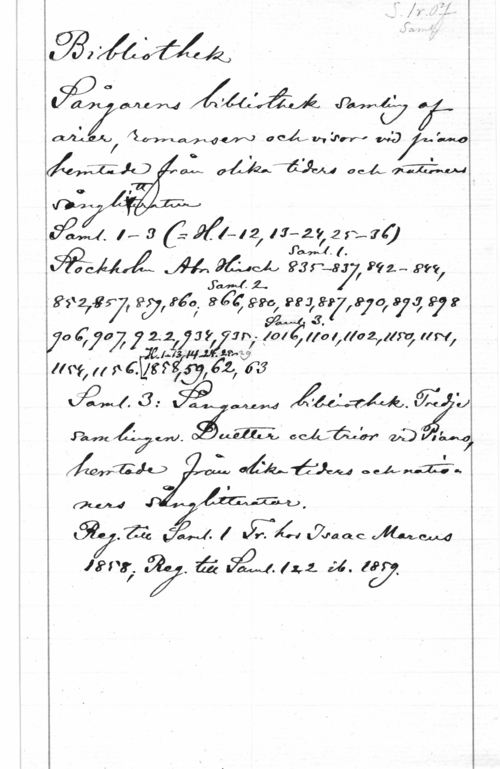 S. /r. 0?/
Saml
Bibliothek
Sångarens bibliothek samling af
arier, romanser och visor vid piano
hemtade från olika tiders och nationers
sånglitteratur
Saml. 1-3 (= H. 1-12, 13-24, 25-36)
Saml. 1.
Stockholm Abr. Hirsch 835-837, 842-844,
Saml. 2.
852, 857, 859, 860, 866, 880, 883, 887, 890, 893, 898
Saml. 3.
906, 907, 922, 934, 935; 1016, 1101, 1102, 1150, 1151,
H. 1-13, 14-24, 25-29
1154, 1156. [1858, 59, 62, 63
Saml. 3: Sångarens bibliothek. Tredje
samlingen. Duetter och trior vid Piano,
hemtade från olika tiders och natio-
ners sånglitteratur.
Reg. till Saml. 1 Tr. hos Isaac Marcus
1858; Reg. till Saml. 1 & 2 ib. 1859.